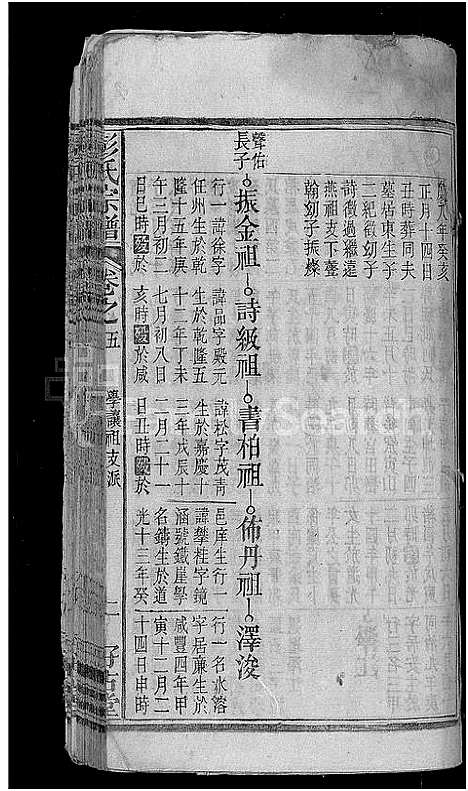 豫八年癸亥
正月十四日
丑時葬同夫
墓居東生子
二紀徵幼子
詩徵過繼遠
燕祖支下鏊
翰幼子振燦
聲佑長子
振金祖
詩級祖
書柏祖
佈丹祖
澤浚
行一諱徐字
任州生於乾
隆十五年庚
午三月初二
日巳時歿於
諱品字殿元
生於乾隆五
十二年丁未
七月初八日
亥時歿於咸
諱松字茂青
生於嘉慶十
三年戊辰十
二月二十一
日丑時歿於
邑庠生行一
諱攀桂字鏡
涵號鐵崖學
名鑄生於道
光十三年癸
行一名水溶
字居廉生於
咸豐四年甲
寅十二月二
十四日申時
彭氏宗譜
卷之五
學讓祖支派
二
Search